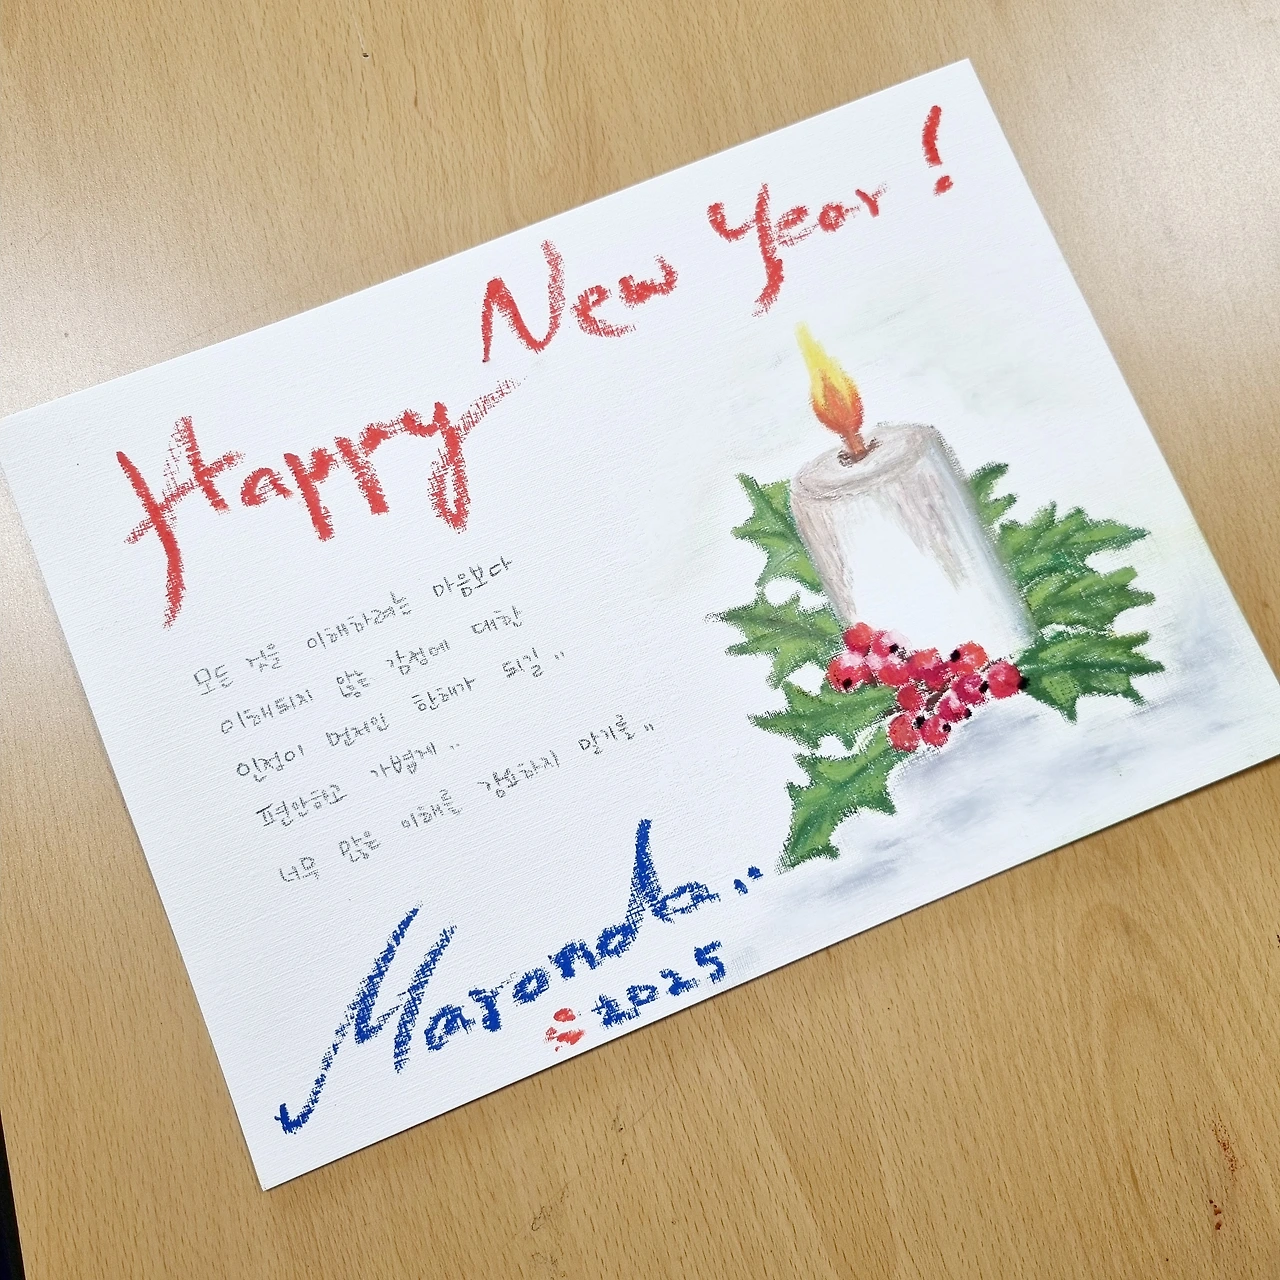 Happy New Year!
모든 것을 이해하려는 마음보다
이해되지 않는 감정에 대한
인정이 먼저인 한해가 되길..
편안하고 가볍게..
너무 많은 이해를 강요하지 말기를..
Maronda..
2025